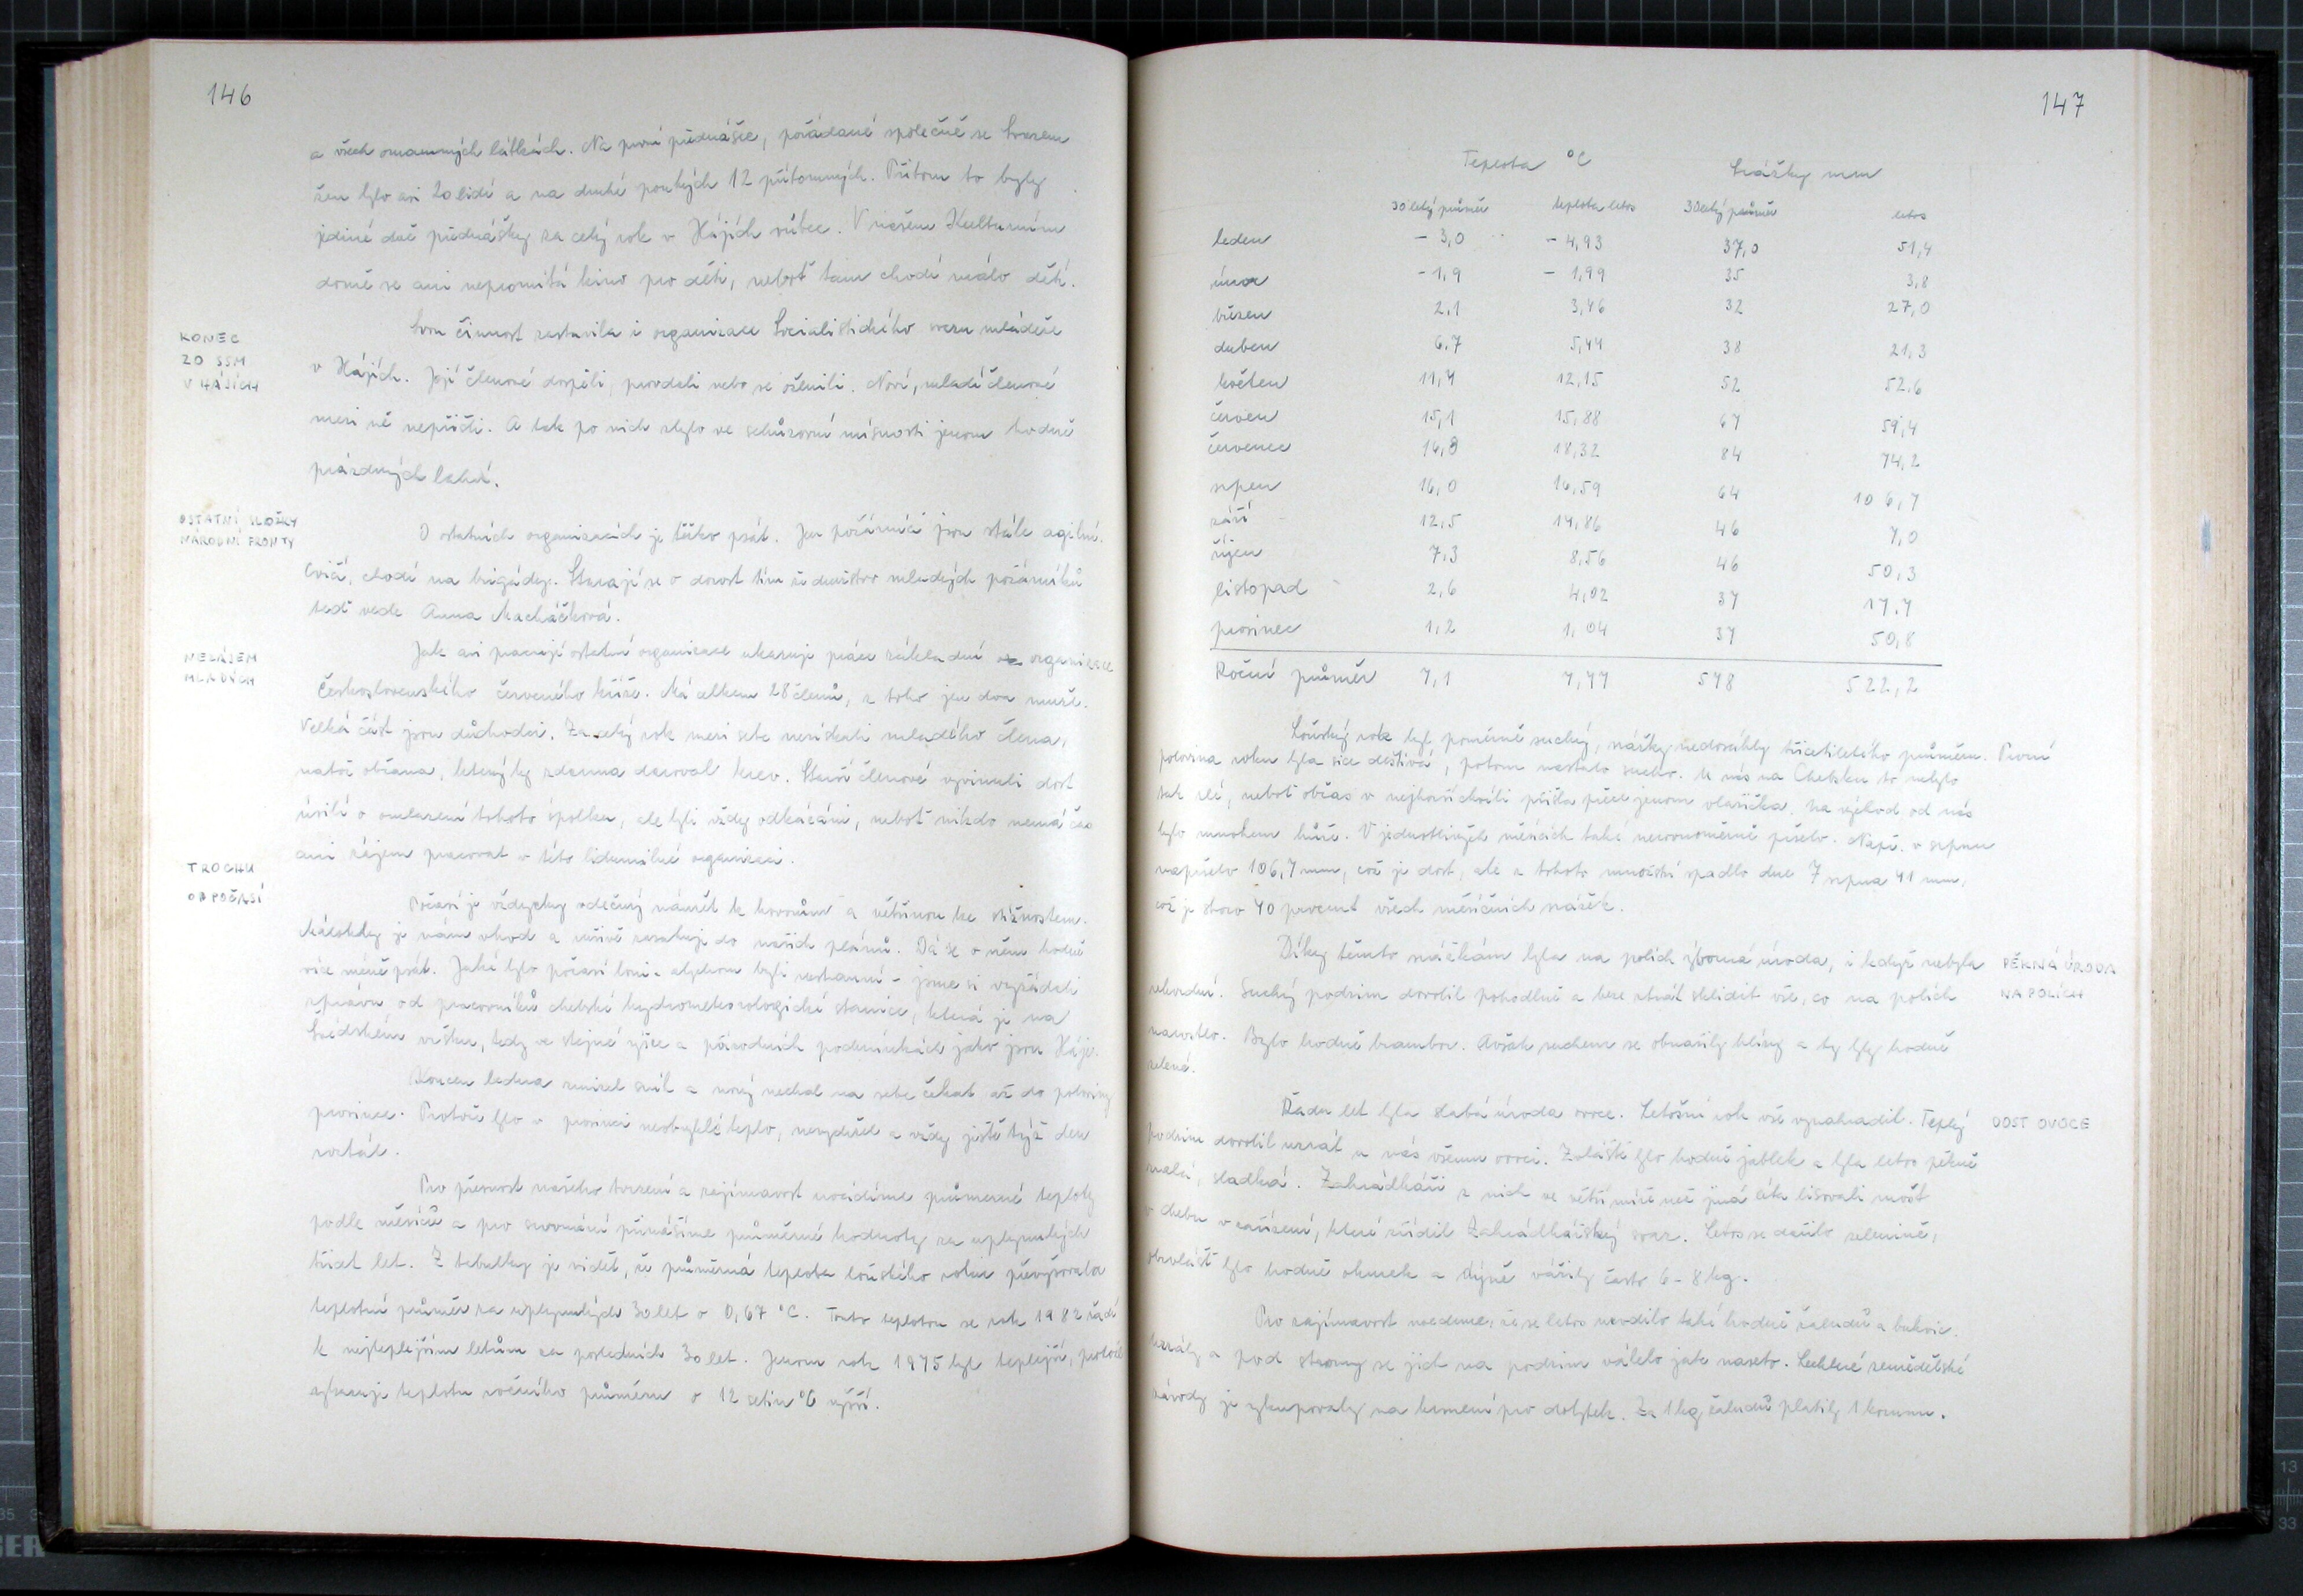 146
a všech omamných látkách. Na první přednášce, pořádané společně se Svazem
žen bylo asi 20 lidí a na druhé pouhých 12 přítomných. Přitom to byly
jediné dvě přednášky za celý rok v Hájích vůbec. V našem Kulturním
domě se ani nepromítá kino pro děti, neboť tam chodí málo dětí.
KONEC
ZO SSM
V HÁJÍCH
Svou činnost zastavila i organizace Socialistického svazu mládeže
v Hájích. Její členové dospěli, provdali nebo se oženili. Noví, mladí členové
mezi ně nepřišli. A tak po nich zbylo ve schůzovní místnosti jenom hodně
prázdných lahví.
OSTATNÍ SLOŽKY
NÁRODNÍ FRONTY
O ostatních organizacích je těžko psát. Jen požárníci jsou stále agilní.
Cvičí, chodí na brigády. Starají se o dorost tím že družstvo mladých požárníků
teď vede Anna Macháčková.
NEZÁJEM
MLADÝCH
Jak asi pracují ostatní organizace ukazuje práce základní organizace
Československého červeného kříže. Má celkem 28 členů, z toho jen dva muže.
Velká část jsou důchodci. Za celý rok mezi sebe nezískali mladého člena,
natož občana, který by zdarma daroval krev. Starší členové vyvinuli dost
úsilí o omlazení tohoto spolku, ale byli vždy odkázáni, neboť nikdo nemá čas
ani zájem pracovat v této lidumilné organizaci.
TROCHU
O POČASÍ
Počasí je vždycky vděčný námět k hovorům a většinou ke stížnostem.
Málokdy je nám vhod a rušivě zasahuje do našich plánů. Dá se o něm hodně
více méně psát. Jaké bylo počasí loni - abychom byli nestranní - jsme si vyžádali
zprávu od pracovníků chebské hydrometeorologické stanice, která je na
Švédském vršku, tedy ve stejné výšce a přírodních podmínkách jako jsou Háje.
Koncem ledna zmizel sníh a nový nechal na sebe čekat až do poloviny
prosince. Protože bylo v prosinci neobyklé teplo, nevydržel a vždy ještě týž den
roztál.
Pro přesnost našeho tvrzení a zajímavost uvádíme průměrné teploty
podle měsíců a pro srovnání přinášíme průměrné hodnoty za uplynulých
třicet let. Z tabulky je vidět, že průměrná teplota loňského roku převyšovala
teplotní průměr za uplynulých 30 let o 0,67 °C. Touto teplotou se rok 1982 řadí
k nejteplejším letům za posledních 30 let. Jenom rok 1975 byl teplejší, protože
vykazuje teplotu ročního průměru o 12 setin °C vyšší.
147
Teplota °C Srážky mm
30 letý průměr teplota letos 30letý průměr letos
leden - 3,0 - 4,93 37,0 51,4
únor -1,9 - 1,99 35 3,8
březen 2,1 3,46 32 27,0
duben 6,7 5,44 38 21,3
květen 11,4 12,15 52 52,6
červen 15,1 15,88 67 59,4
červenec 16,8 18,32 84 74,2
srpen 16,0 16,59 64 106,7
září 12,5 14,86 46 7,0
říjen 7,3 8,56 46 50,3
listopad 2,6 4,02 37 17,7
prosinec 1,2 1,04 37 50,8
Roční průměr 7,1 7,77 578 522,2
Loňský rok byl poměrně suchý, srážky nedosáhly třicetiletého průměru. První
polovina roku byla sice deštivá, potom nastalo sucho. U nás na Chebsku to nebylo
tak zlé, neboť občas v nejhorší chvíli přišla přece jenom vlažička. Na východ od nás
bylo mnohem hůře. V jednotlivých měsících také nerovnoměrně pršelo. Např. v srpnu
napršelo 106,7 mm, což je dost, ale z tohoto množství spadlo dne 7 srpna 41 mm,
což je skoro 40 procent všech měsíčních srážek.
PĚKNÁ ÚRODA
NA POLÍCH
Díky těmto srážkám byla na polích výborná úroda, i když nebyla
rekordní. Suchý podzim dovolil pohodlně a beze ztrát sklidit vše, co na polích
narostlo. Bylo hodně brambor. Avšak suchem se obnažily hlízy a ty byly hodně
zelené.
DOST OVOCE
Řadu let byla slabá úroda ovoce. Letošní rok vše vynahradil. Teplý
podzim dovolil uzrát u nás všemu ovoci. Zvláště bylo hodně jablek a byla letos pěkně
velká, sladká. Zahrádkáři z nich ve větší míře než jiná léta lisovali mošt
v Chebu v zařízení, které zřídil Zahrádkářský svaz. Letos se dařilo zelenině,
obzvlášť bylo hodně okurek a dýně vážily často 6 - 8 kg.
Pro zajímavost uvedeme, že se letos urodilo také hodně žaludů a bukvic.
Uzrály a pod stromy se jich na podzim válelo jak naseto. Světlné zemědělské
závody je vykupovaly na krmení pro dobytek. Za 1 kg žaludů platily 1 korunu.